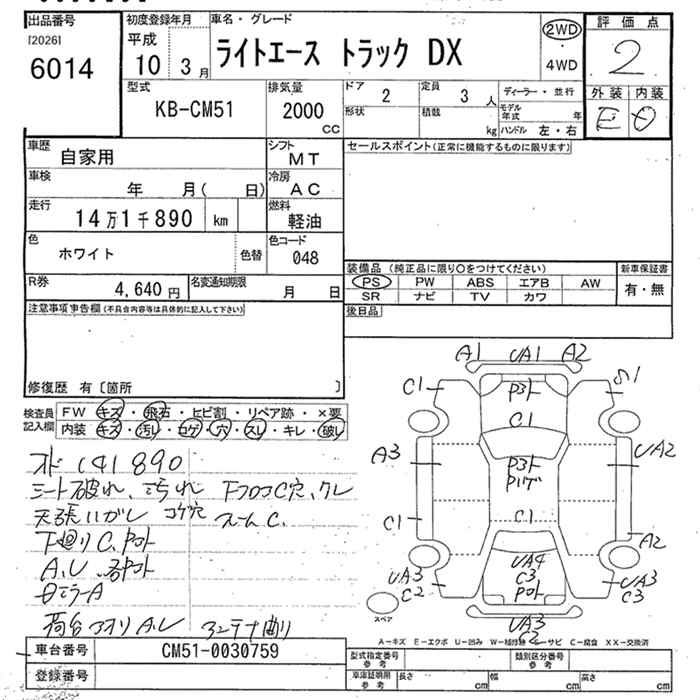 出品番号
[2026]
6014
初度登録年月
平成
10 3月
車名・グレード
ライトエース トラック DX
2WD
・
4WD
評価点
2
外装 内装
E D
型式
KB-CM51
排気量
2000
CC
ドア 2
形状
定員 3 人
積載 kg
ディーラー・並行
モデル年式 年
ハンドル 左・右
車歴
自家用
シフト
MT
セールスポイント(正常に機能するものに限ります)
車検
年 月( 日)
冷房
AC
走行
14万1千890 km
燃料
軽油
色
ホワイト
色替
色コード
048
装備品 (純正品に限り○をつけてください)
新車保証書
PS PW ABS エアB AW
有・無
SR ナビ TV カワ
R券
4,640 円
名変通知期限
月 日
後日品
注意事項申告欄(不具合内容等は具体的に記入して下さい)
修復歴 有〔箇所 〕
検査員
記入欄
FW キズ・飛石・ヒビ割・リペア跡・×要
内装 キズ・汚レ・コゲ・穴・スレ・キレ・破レ
141890
シート破れ、
コゲ穴
下廻りC、
A、U
A
荷台 アオリA、U アンテナ曲り
A1 UA1 A2
C1
C1
A3
UA2
C1
C1
A2
UA3
C2
UA4
C3
UA3
C3
UA3
C2
スペア
A－キズ E－エクボ U－凹み W－補修跡 S－サビ C－腐食 XX－交換済
車台番号
CM51-0030759
登録番号
型式指定番号
参考
類別区分番号
参考
車庫証明用
参考
長さ cm
幅 cm
高さ cm